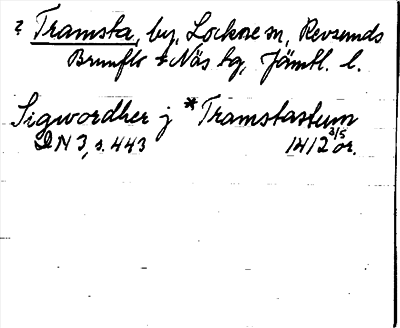 ? Tramsta, by, Lockne sn, Revsunds
Brunflo & Näs tg, Jämtl. l.
Sigwordher j *Tramstastum
DN 3, s. 443 14 3/5 12 or.